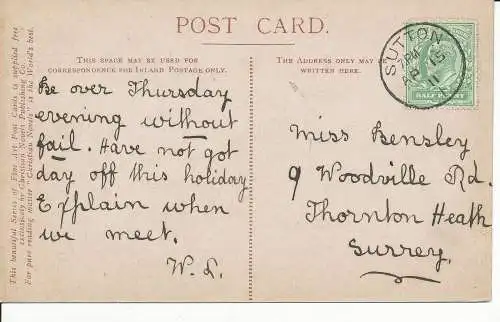 POST CARD.
THIS SPACE MAY BE USED FOR
CORRESPONDENCE FOR INLAND POSTAGE ONLY.
THE ADDRESS ONLY MAY
WRITTEN HERE.
SUTTON
7 PM
AP 15
11
HALFPENNY
Be over Thursday
evening without
fail. Have not got
day off this holiday
Explain when
we meet.
W. L.
Miss Bensley
9 Woodville Rd.
Thornton Heath
Surrey.
This beautiful Series of Fine Art Post Cards is supplied free
exclusively by Christian Novels Publishing Co.
For pure reading matter "Christian Novels" is the World's best.